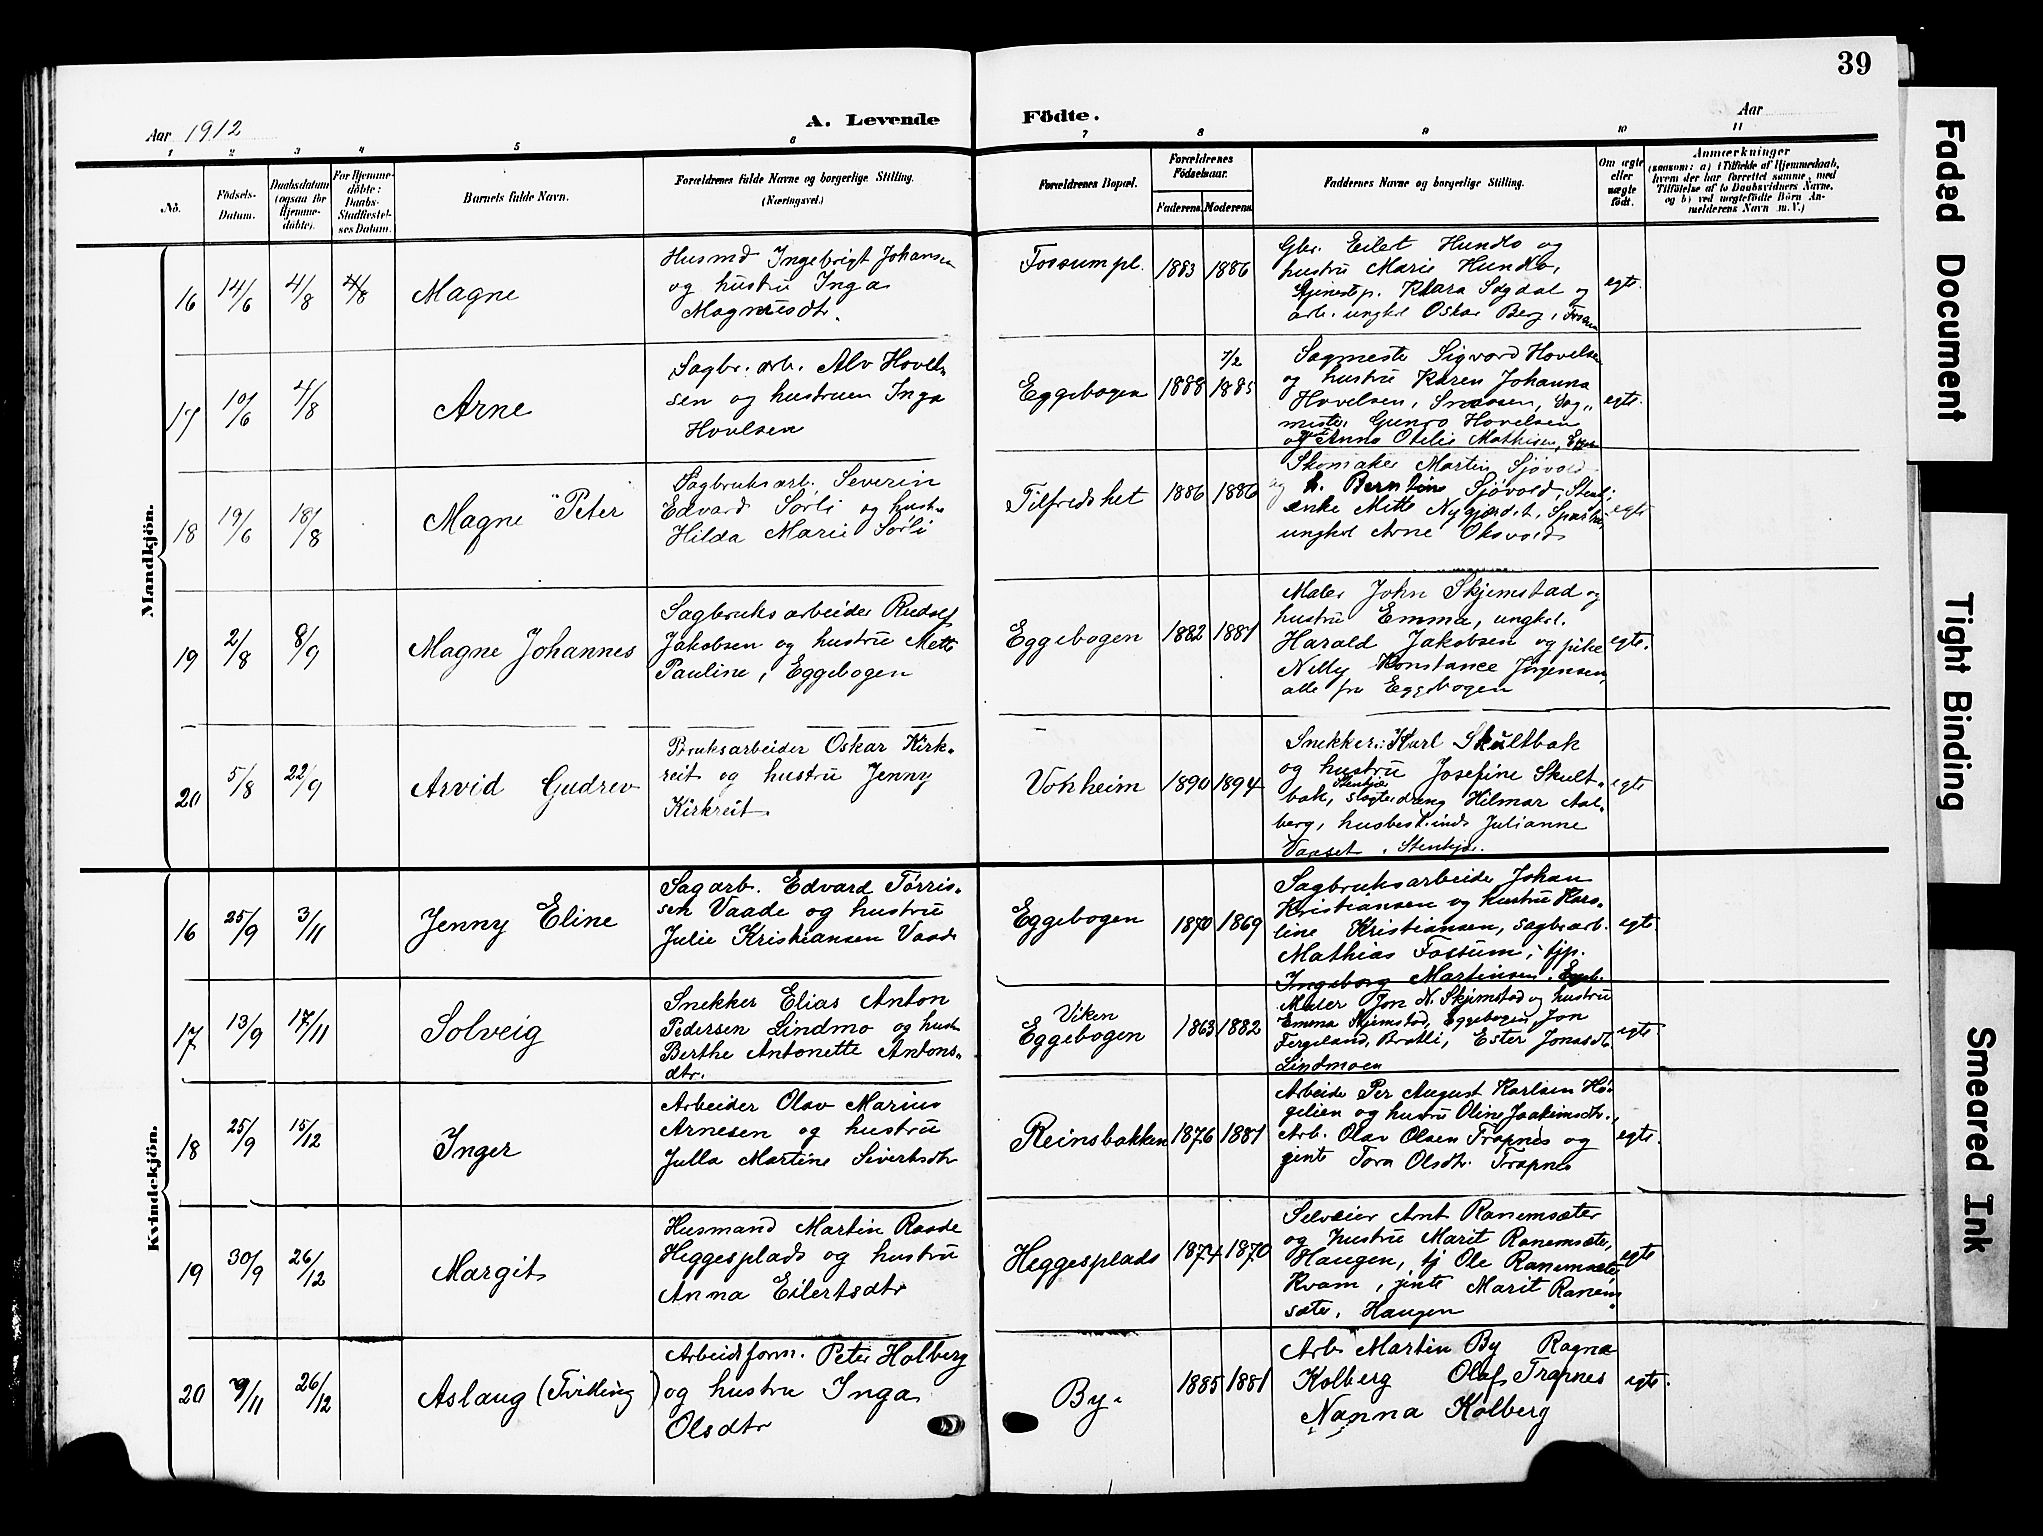 39
Aar 1912
A. Levende
Födte.
Aar
1 2 3 4 5 6 7 8 9 10 11
No.
Födsels-Datum.
Daabsdatum (ogsaa for Hjemme-döbte).
For Hjemme-döbte: Daabs-Stadfæstel-ses Datum.
Barnets fulde Navn.
Forældrenes fulde Navne og borgerlige Stilling.
(Næringsvei.)
Forældrenes Bopæl.
Forældrenes Födselsaar.
Faderens. Moderens.
Faddernes Navne og borgerlige Stilling.
Om ægte eller uægte födt.
Anmærkninger
(saasom: a) i Tilfælde af Hjemmedaab,
hvem der har forrettet samme, med
Tilföielse af to Daabsvidners Navne,
og b) ved uægtefödte Börn An-
melderens Navn m. V.)
Mandkjön.
16 14/6 4/8 4/8 Magne
Husmd Ingebrigt Johansen
og hustru Inga
Magnusdtr.
Fossumpl. 1883 1886
Gbr. Eilert Hundlo og
hustru Marie Hundlo,
tjenestep. Klara Sogdal og
arb. ungkl Oskar Berg, Fossum
egte.
17 10/6 4/8 Arne
Sagbr. arb. Alv Hovel-
sen og hustruen Inga
Hovelsen
Eggebogen 1888 7/2 1885
Sagmester Sigvard Hovelsen
og hustru Karen Johanna
Hovelsen, Snaasen, Sag-
mester Gunro Hovelsen
og Anna Otelie Mathisen,
egte.
18 19/6 18/8 Magne Peter
Sagbruksarb. Severin
Edvard Sørli og hustru
Hilda Marie Sørli
Tilfredshet 1886 1886
Skomaker Martin Sjøvold
og h. Berntine Sjøvold, Stenkj.
enke Mette Nygjærdet, Sparbu,
ungkl Arne Oksvold
egte
19 2/8 8/9 Magne Johannes
Sagbruksarbeider Rudolf
Jakobsen og hustru Mette
Pauline, Eggebogen
Eggebogen 1882 1881
Maler John Skjemstad og
hustru Emma, ungkl.
Harald Jakobsen og pike
Nelly Konstance Jørgensen,
alle fra Eggebogen
egte.
20 5/8 22/9 Arvid Gudrev
Bruksarbeider Oskar Kirk-
reit og hustru Jenny
Kirkreit.
Vonheim 1890 1894
Snekker Karl Skultbak
og hustru Josefine Skult-
bak, Stenkjær slagterdreng Hilmar Aal-
berg, husbest.inde Julianne
Vaaset, Stenkjær.
egte
Kvindekjön.
16 25/9 3/11 Jenny Eline
Sagarb. Edvard Tørris-
sen Vaade og hustru
Julie Kristiansen Vaade
Eggebogen 1870 1869
Sagbruksarbeider Johan
Kristiansen og hustru Karo-
line Kristiansen, sagbrarb.
Mathias Fossum, tjp.
Ingeborg Martinsen, Eggeb.
egte.
17 13/9 17/11 Solveig
Snekker Elias Anton
Pedersen Lindmo og hust.
Berthe Antonette Antons-
dtr.
Viken
Eggebogen 1863 1882
Maler Jon N. Skjemstad og hustru
Emma Skjemstad, Eggebogen, Jon
Fergeland, Bratli, Ester Jonasdtr
Lindmoen
egte
18 25/9 15/12 Inger
Arbeider Olav Marius
Arnesen og hustru
Julla Martine Sivertsdtr
Reinsbakken 1876 1881
Arbeider Per August Karlsen Hø-
gelien og hustru Oline Joakimsdtr.,
Arb. Olav Olsen Trapnes og
jente Tora Olsdtr. Trapnes
egte.
19 30/9 26/12 Margit
Husmand Martin Raade
Heggesplads og hustru
Anna Eilertsdtr
Heggesplads 1874 1870
Selveier Arnt Ranemsæter
og hustru Marit Ranemsæter,
Haugen, tj Ole Ranemsæter
Kvam, jente Marit Ranem-
sæter, Haugen
egte
20 9/11 26/12 Aslaug (Tvilling)
Arbeidsform. Peter Holberg
og hustru Inga
Olsdtr
By. 1885 1881
Arb Martin By Ragna
Kolberg Olaf Trapnes
Nanna Kolberg
egte.
Faded Document
Tight Binding
Smeared Ink